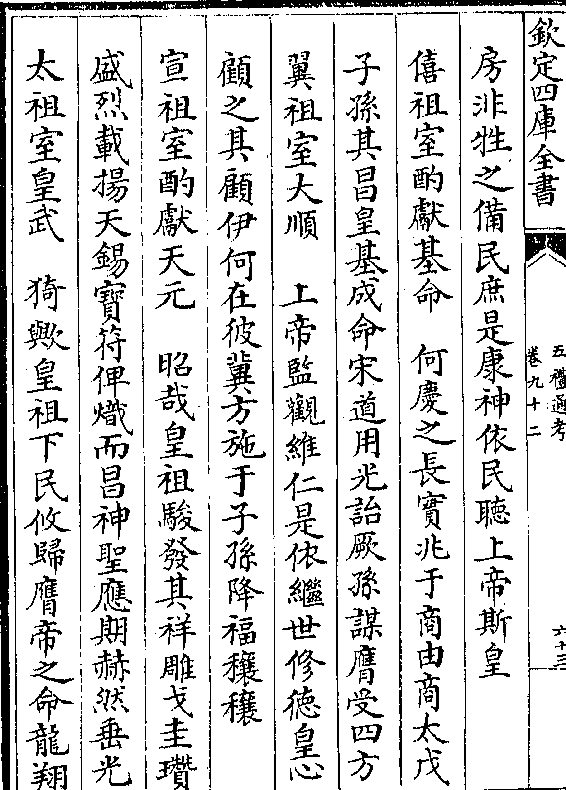 欽定四庫全書
五禮通考
卷九十二
六十三
房非牲之備民庶是康神依民聽上帝斯皇
僖祖室酌獻基命　何慶之長實兆于商由商太戊
子孫其昌皇基成命宋道用光詒厥孫謀膺受四方
翼祖室大順　上帝監觀維仁是依繼世修德皇心
顧之其顧伊何在彼冀方施于子孫降福穰穰
宣祖室酌獻天元　昭哉皇祖駿發其祥雕戈圭瓚
盛烈載揚天錫寶符俾熾而昌神聖應期赫然垂光
太祖室皇武　猗歟皇祖下民攸歸膺帝之命龍翔